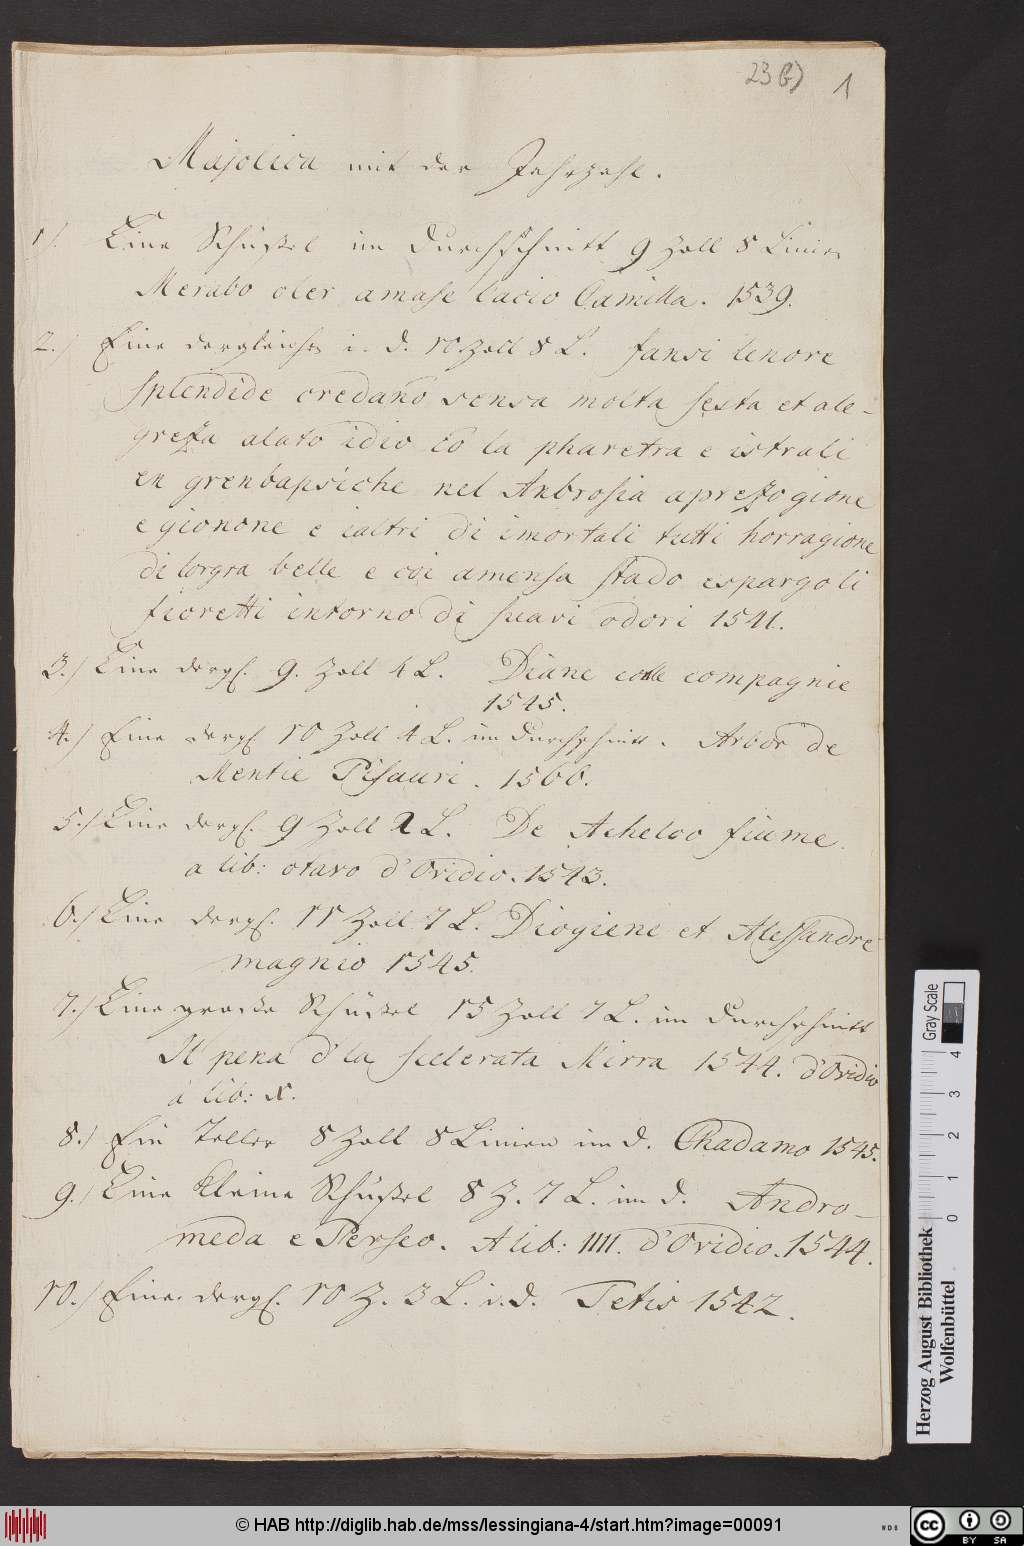 23 b) 1
Majolica mit der Jahrzahl.
1). Eine Schüßel im Durchschnitt 9 Zoll 8 Linien
Merabo oler amase lacio Camilla. 1539.
2.) Eine dergleichen i. D. 10 Zoll 8 L. fansi lenore
splendide credano sensa molta festa et ale-
grezza alato idio co la pharetra e istrali
en grenbapsiche nel Anbrosia aprezzo gione
e gionone e ialtri di imortali tutti horragione
di lorgra belle e coi amensa stado espargoli
fioretti intorno di suavi odori 1541.
3.) Eine dergl. 9. Zoll 4 L. Diane colle compagnie
1545.
4.) Eine dergl. 10 Zoll 4 L. im Durchschnitt. Arbor de
Mentie Pisauri. 1566.
5.) Eine dergl. 9 Zoll 2 L. De Acheloo fiume.
a lib: otavo d'Ovidio. 1543.
6.) Eine dergl. 11 Zoll 7 L. Diogiene et Alessandre
magnio 1545.
7.) Eine große Schüßel 15 Zoll 7 L. im Durchschnitt
Il pena d'la scelerata Mirra 1544. d'Ovidio
a lib: X.
8.) Ein Teller 8 Zoll 8 Linien im D. Chadamo 1545.
9.) Eine kleine Schüßel 8 Z. 7 L. im D. Andro-
meda e Perseo. A lib: IIII. d'Ovidio. 1544.
10.) Eine dergl. 10 Z. 3 L. i. D. Tetis 1542.
Herzog August Bibliothek
Wolfenbüttel
Gray Scale
0 1 2 3 4
© HAB http://diglib.hab.de/mss/lessingiana-4/start.htm?image=00091
WDB
cc BY SA